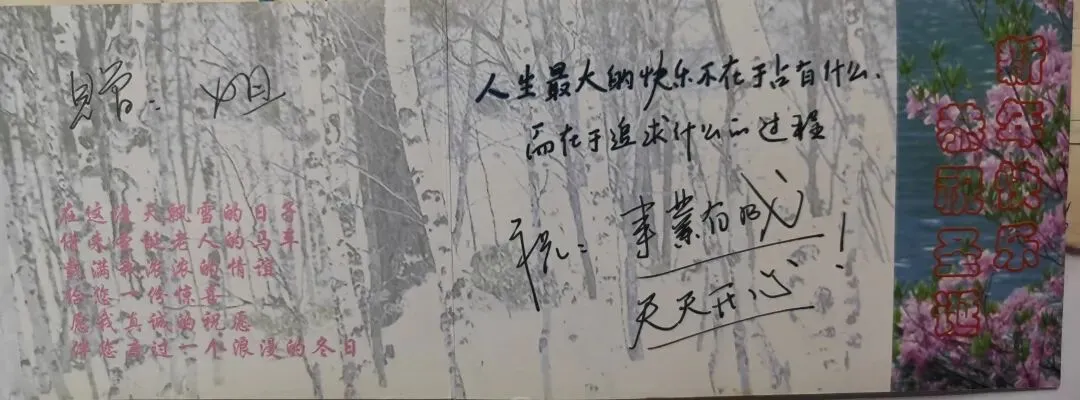 赠:
在这漫天飘雪的日子
借来圣诞老人的马车
载满我浓浓的情谊
给您一份惊喜
愿我真诚的祝愿
伴您度过一个浪漫的冬日
人生最大的快乐不在于占有什么.
而在于追求什么的过程
祝:
事業有所成
天天开心!
新年快乐
恭祝圣诞